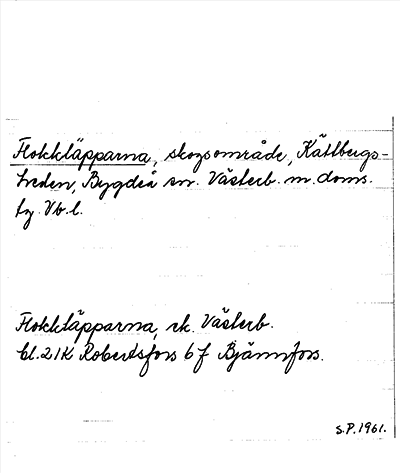 Flokkläpparna, skogsområde, Kättbergs-
heden, Bygdeå sn. Västerb. m. doms.
tg. Vb. l.
Flokkläpparna, ek. Västerb.
bl. 21K Robertsfors 6 f Bjännfors.
S.P. 1961.